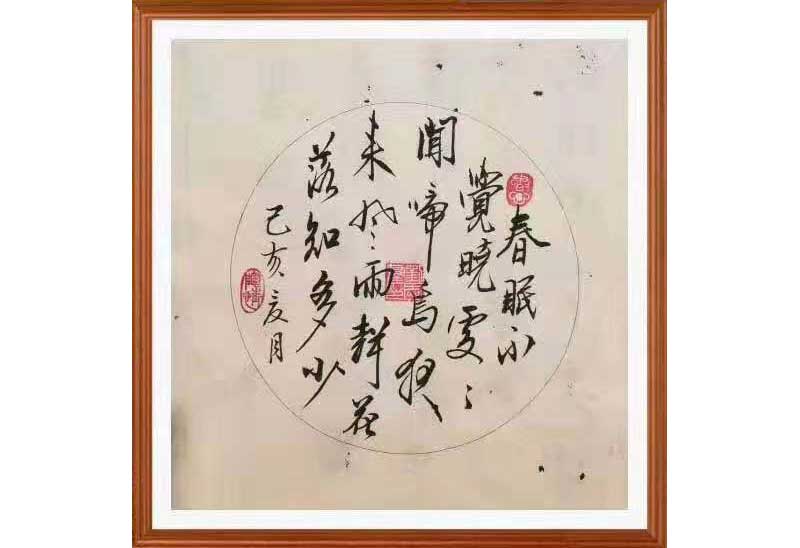 春眠不
覺曉處〻
聞啼鳥夜
来風雨聲花
落知多少
己亥夏月